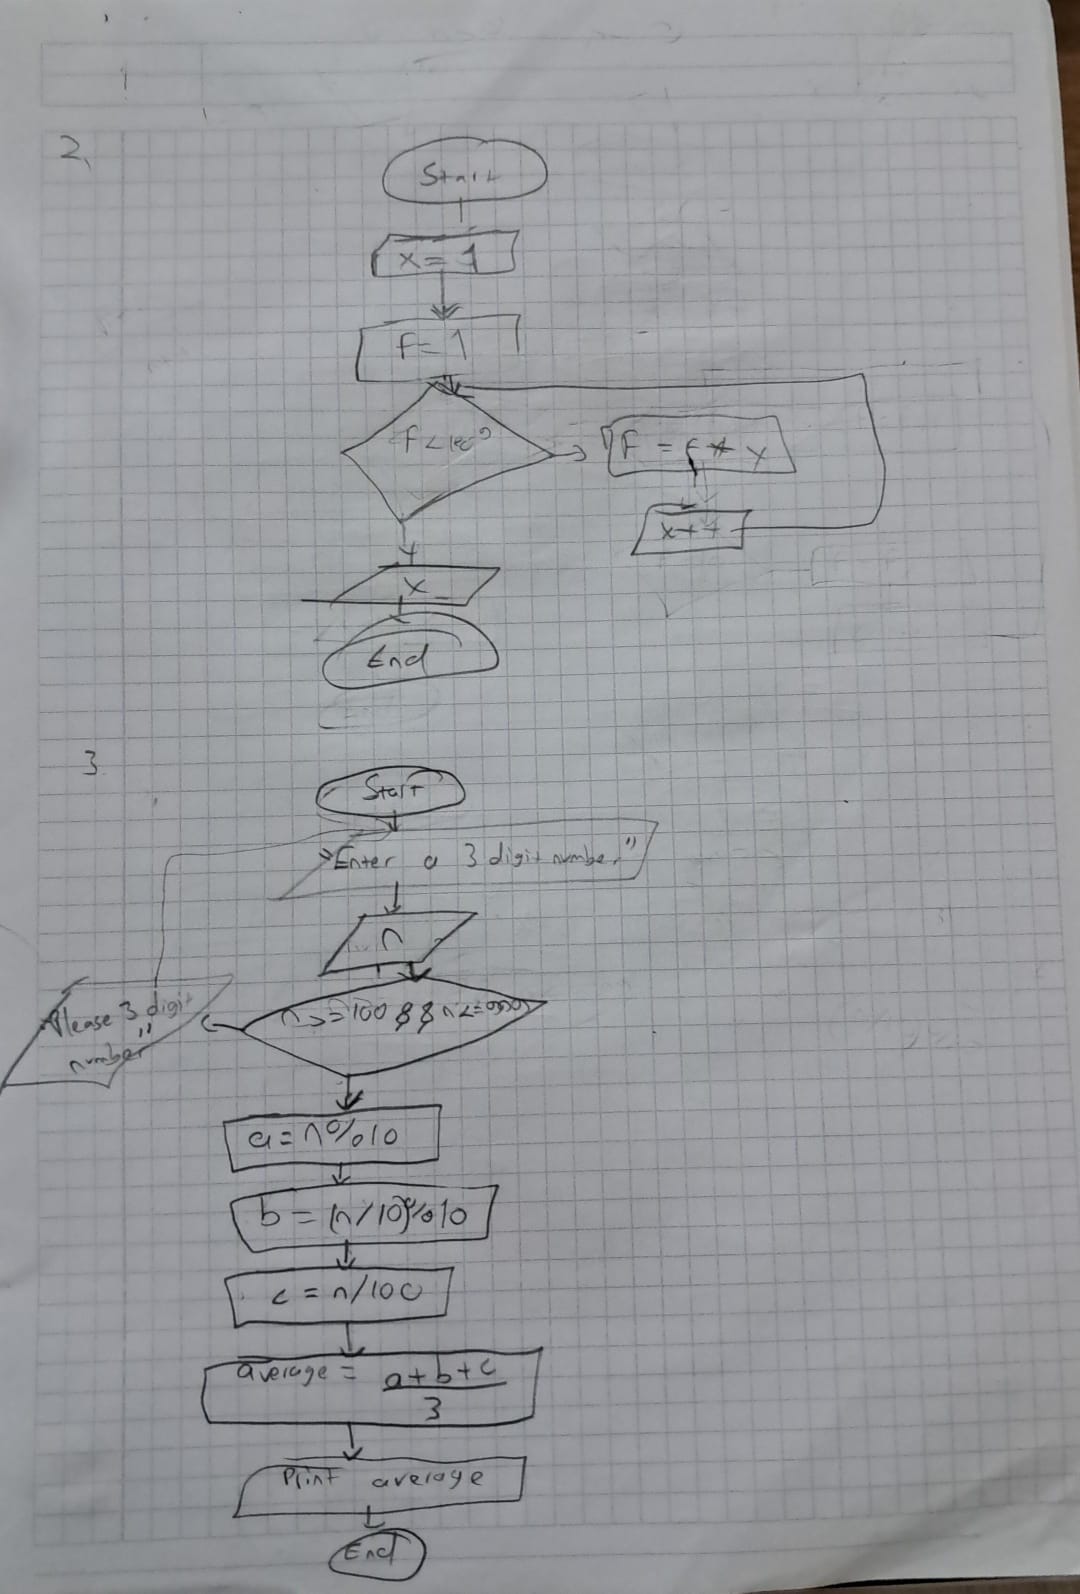 1
2.
Start
x = 1
F = 1
F = F * x
x++
x
End
3
Start
"Enter a 3 digit number"
n
n >= 100 && n <= 999
Please 3 digit
number"
a = n % 10
b = (n/10) % 10
c = n/100
average = a+b+c
3
Print average
End